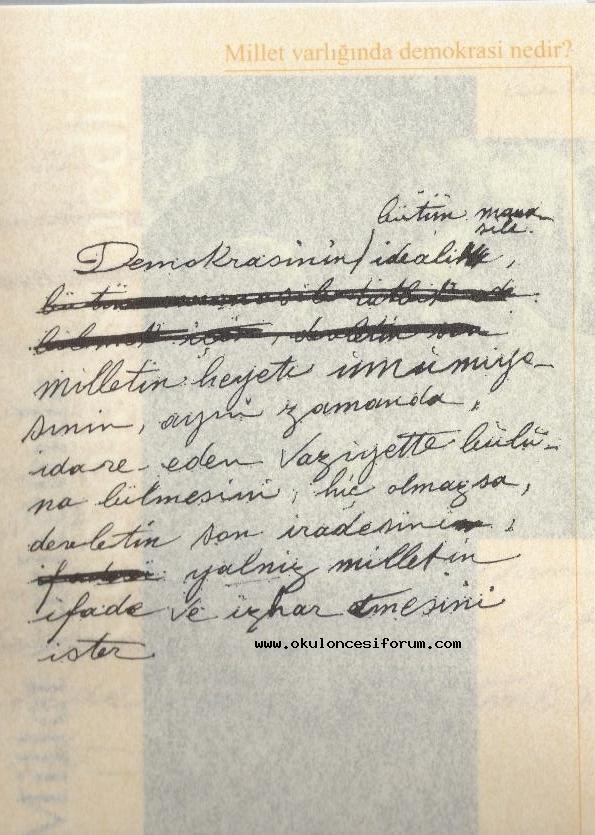 Millet varlığında demokrasi nedir?
bütün mana-
sile.
Demokrasinin/ ideali,
bütün manasile tatbik ede
bilmek için, devletin son
milletin heyeti umumiye-
sinin, ayni zamanda,
idare eden vaziyette bulu-
na bilmesini, hiç olmazsa,
devletin son iradesini,
ifadesi yalnız milletin
ifade ve izhar etmesini
ister
www.okuloncesiforum.com